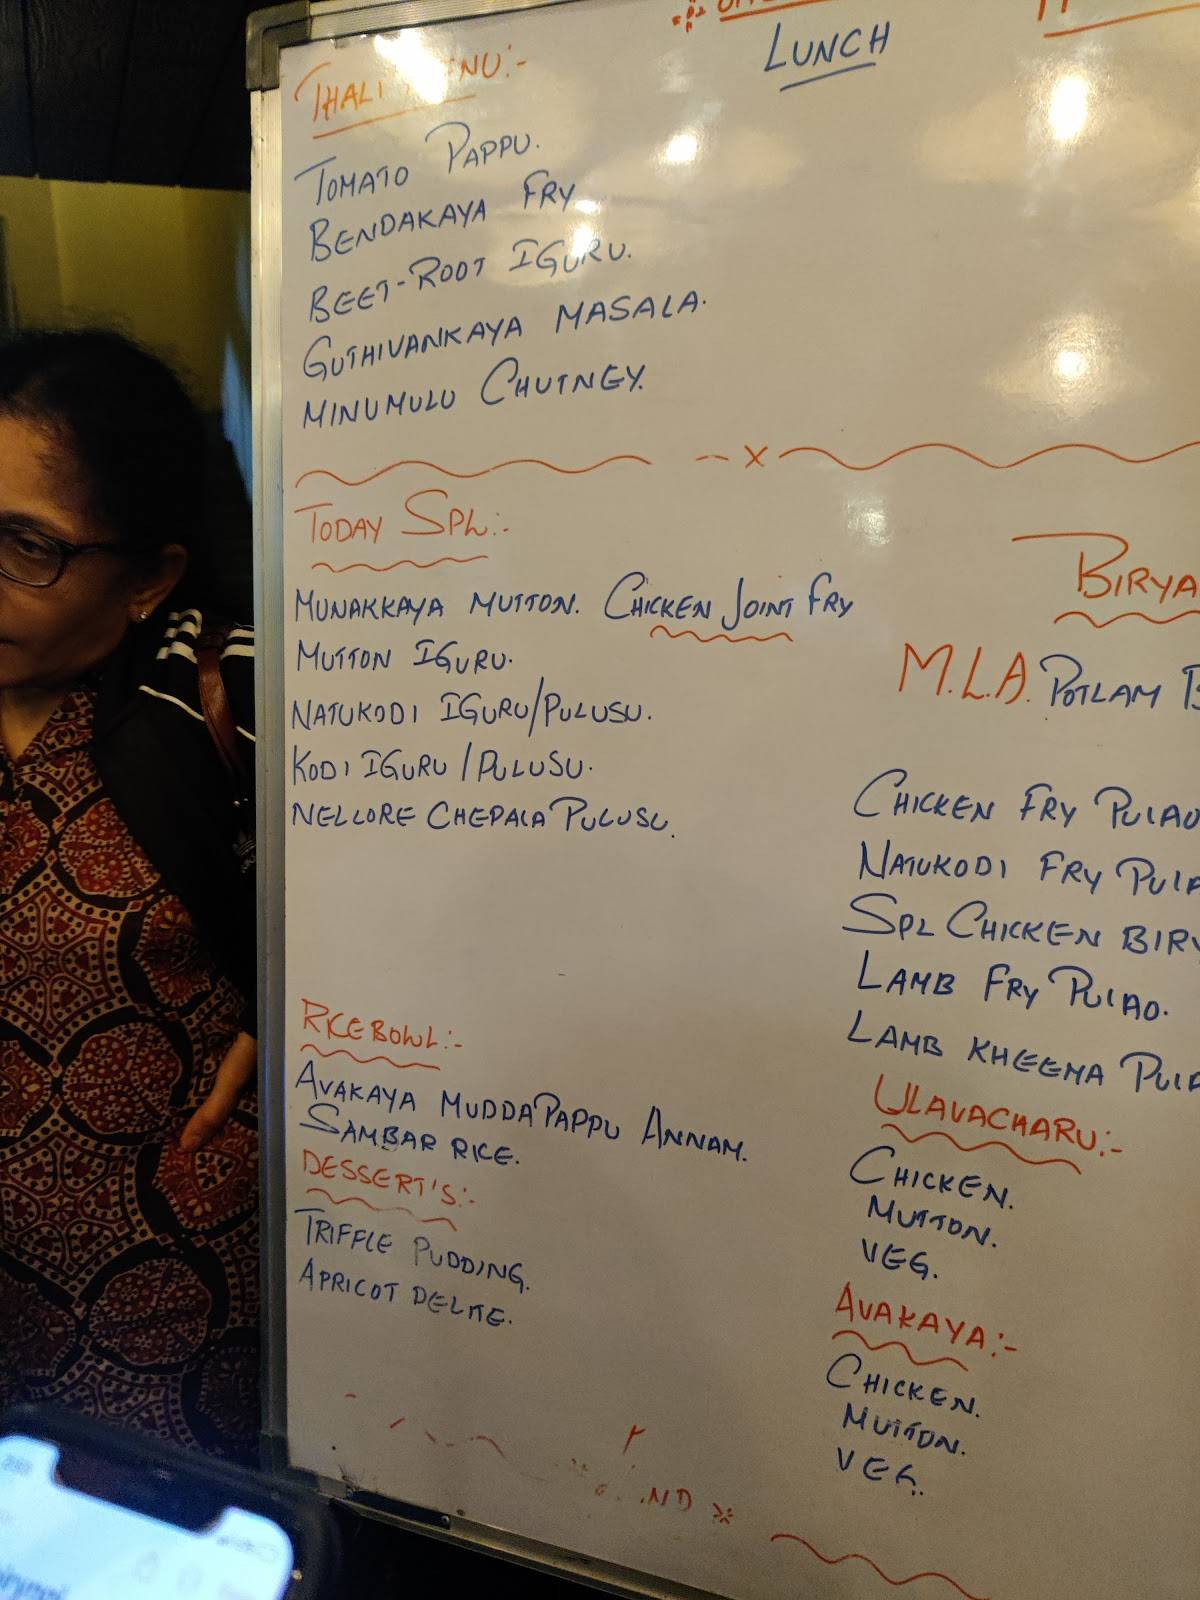 LUNCH
THALI MENU:-
TOMATO PAPPU.
BENDAKAYA FRY
BEET-ROOT IGURU.
GUTHIVANKAYA MASALA.
MINUMULU CHUTNEY.
X
TODAY SPL:-
MUNAKKAYA MUTTON. CHICKEN JOINT FRY
MUTTON IGURU.
NATUKODI IGURU/PULUSU.
KODI IGURU/PULUSU.
NELLORE CHEPALA PULUSU.
RICE BOWL:-
AVAKAYA MUDDAPAPPU ANNAM.
SAMBAR RICE.
DESSERT'S:-
TRIFFLE PUDDING.
APRICOT DELITE.
BIRYA
M.L.A. POTLAM B
CHICKEN FRY PULAO
NATUKODI FRY PULA
SPL CHICKEN BIRY
LAMB FRY PULAO.
LAMB KHEEMA PULA
ULAVACHARU:-
CHICKEN.
MUTTON.
VEG.
AVAKAYA:-
CHICKEN.
MUTTON.
VEG.